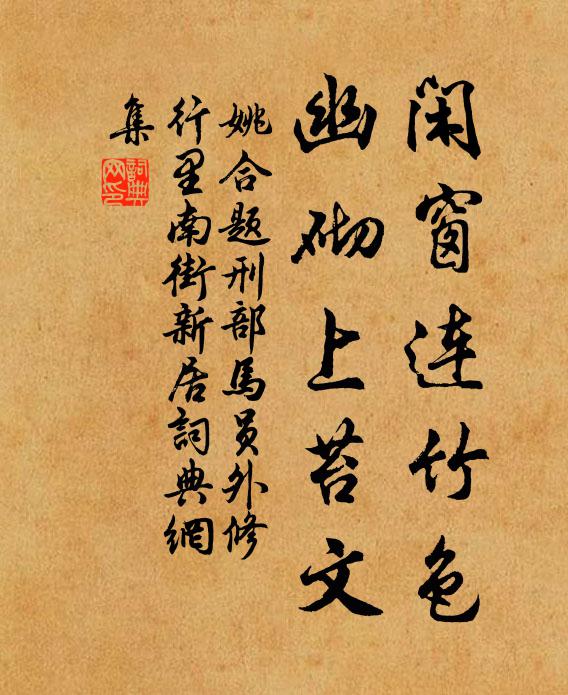 闲窗连竹色
幽砌上苔文
姚合题刑部馬员外修
行里南街新居詞典網
集
詞典
网印